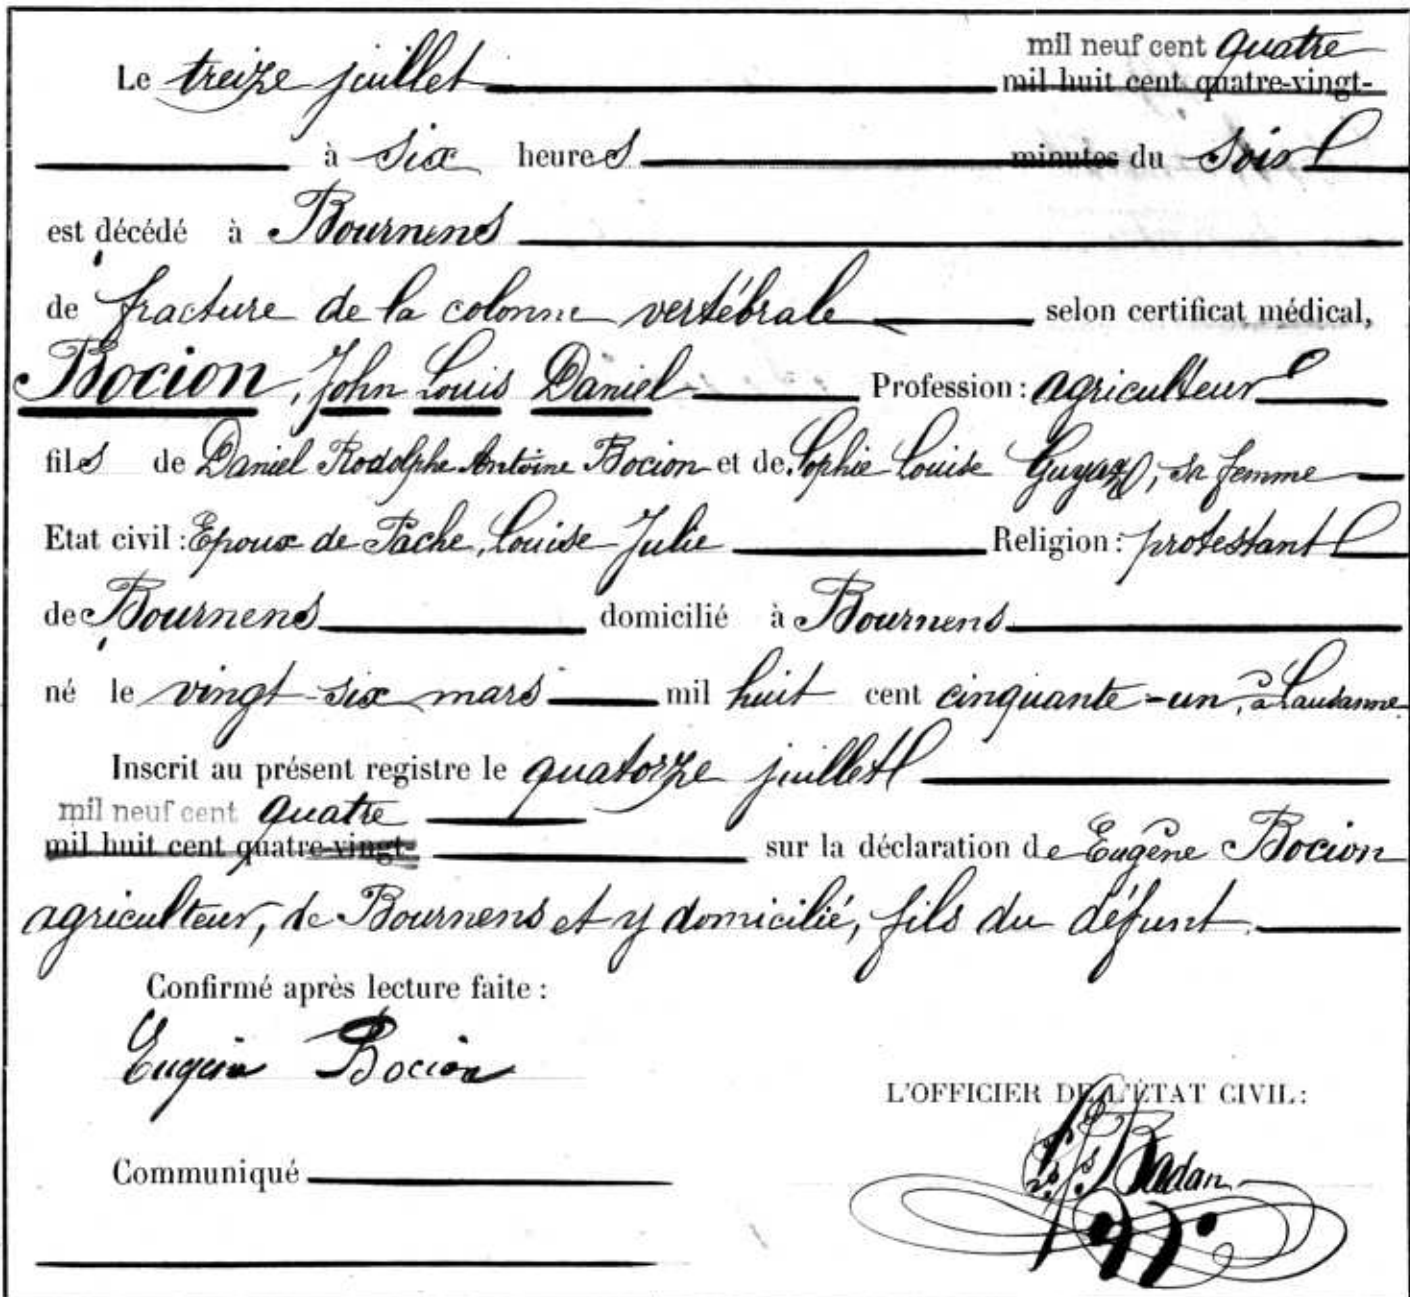 mil neuf cent quatre
Le treize juillet mil huit cent quatre-vingt-
à six heures minutes du soir
est décédé à Bournens
de fracture de la colonne vertébrale selon certificat médical,
Bocion, John Louis Daniel Profession: agriculteur
fils de Daniel Rodolphe Antoine Bocion et de Sophie Louise Guyaz, sa femme
Etat civil: Epoux de Pache, Louise-Julie Religion: protestant
de Bournens domicilié à Bournens
né le vingt-six mars mil huit cent cinquante-un, à Lausanne
Inscrit au présent registre le quatorze juillet
mil neuf cent quatre
mil huit cent quatre-vingt- sur la déclaration de Eugène Bocion
agriculteur, de Bournens et y domicilié, fils du défunt.
Confirmé après lecture faite:
Eugène Bocion
L'OFFICIER DE L'ÉTAT CIVIL:
Badan
Communiqué